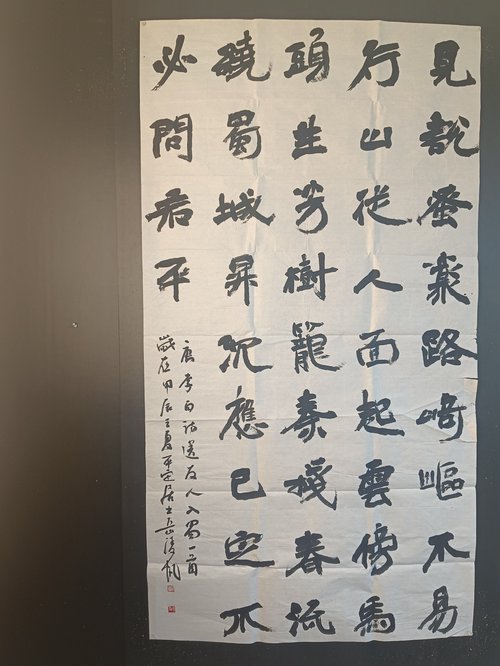 見說蚕叢路崎嶇不易
行山從人面起雲傍馬
頭生芳樹籠秦棧春流
繞蜀城昇沉應已定不
必問君平
唐李白詩送友人入蜀一首
歲在甲辰之夏平定居士岳